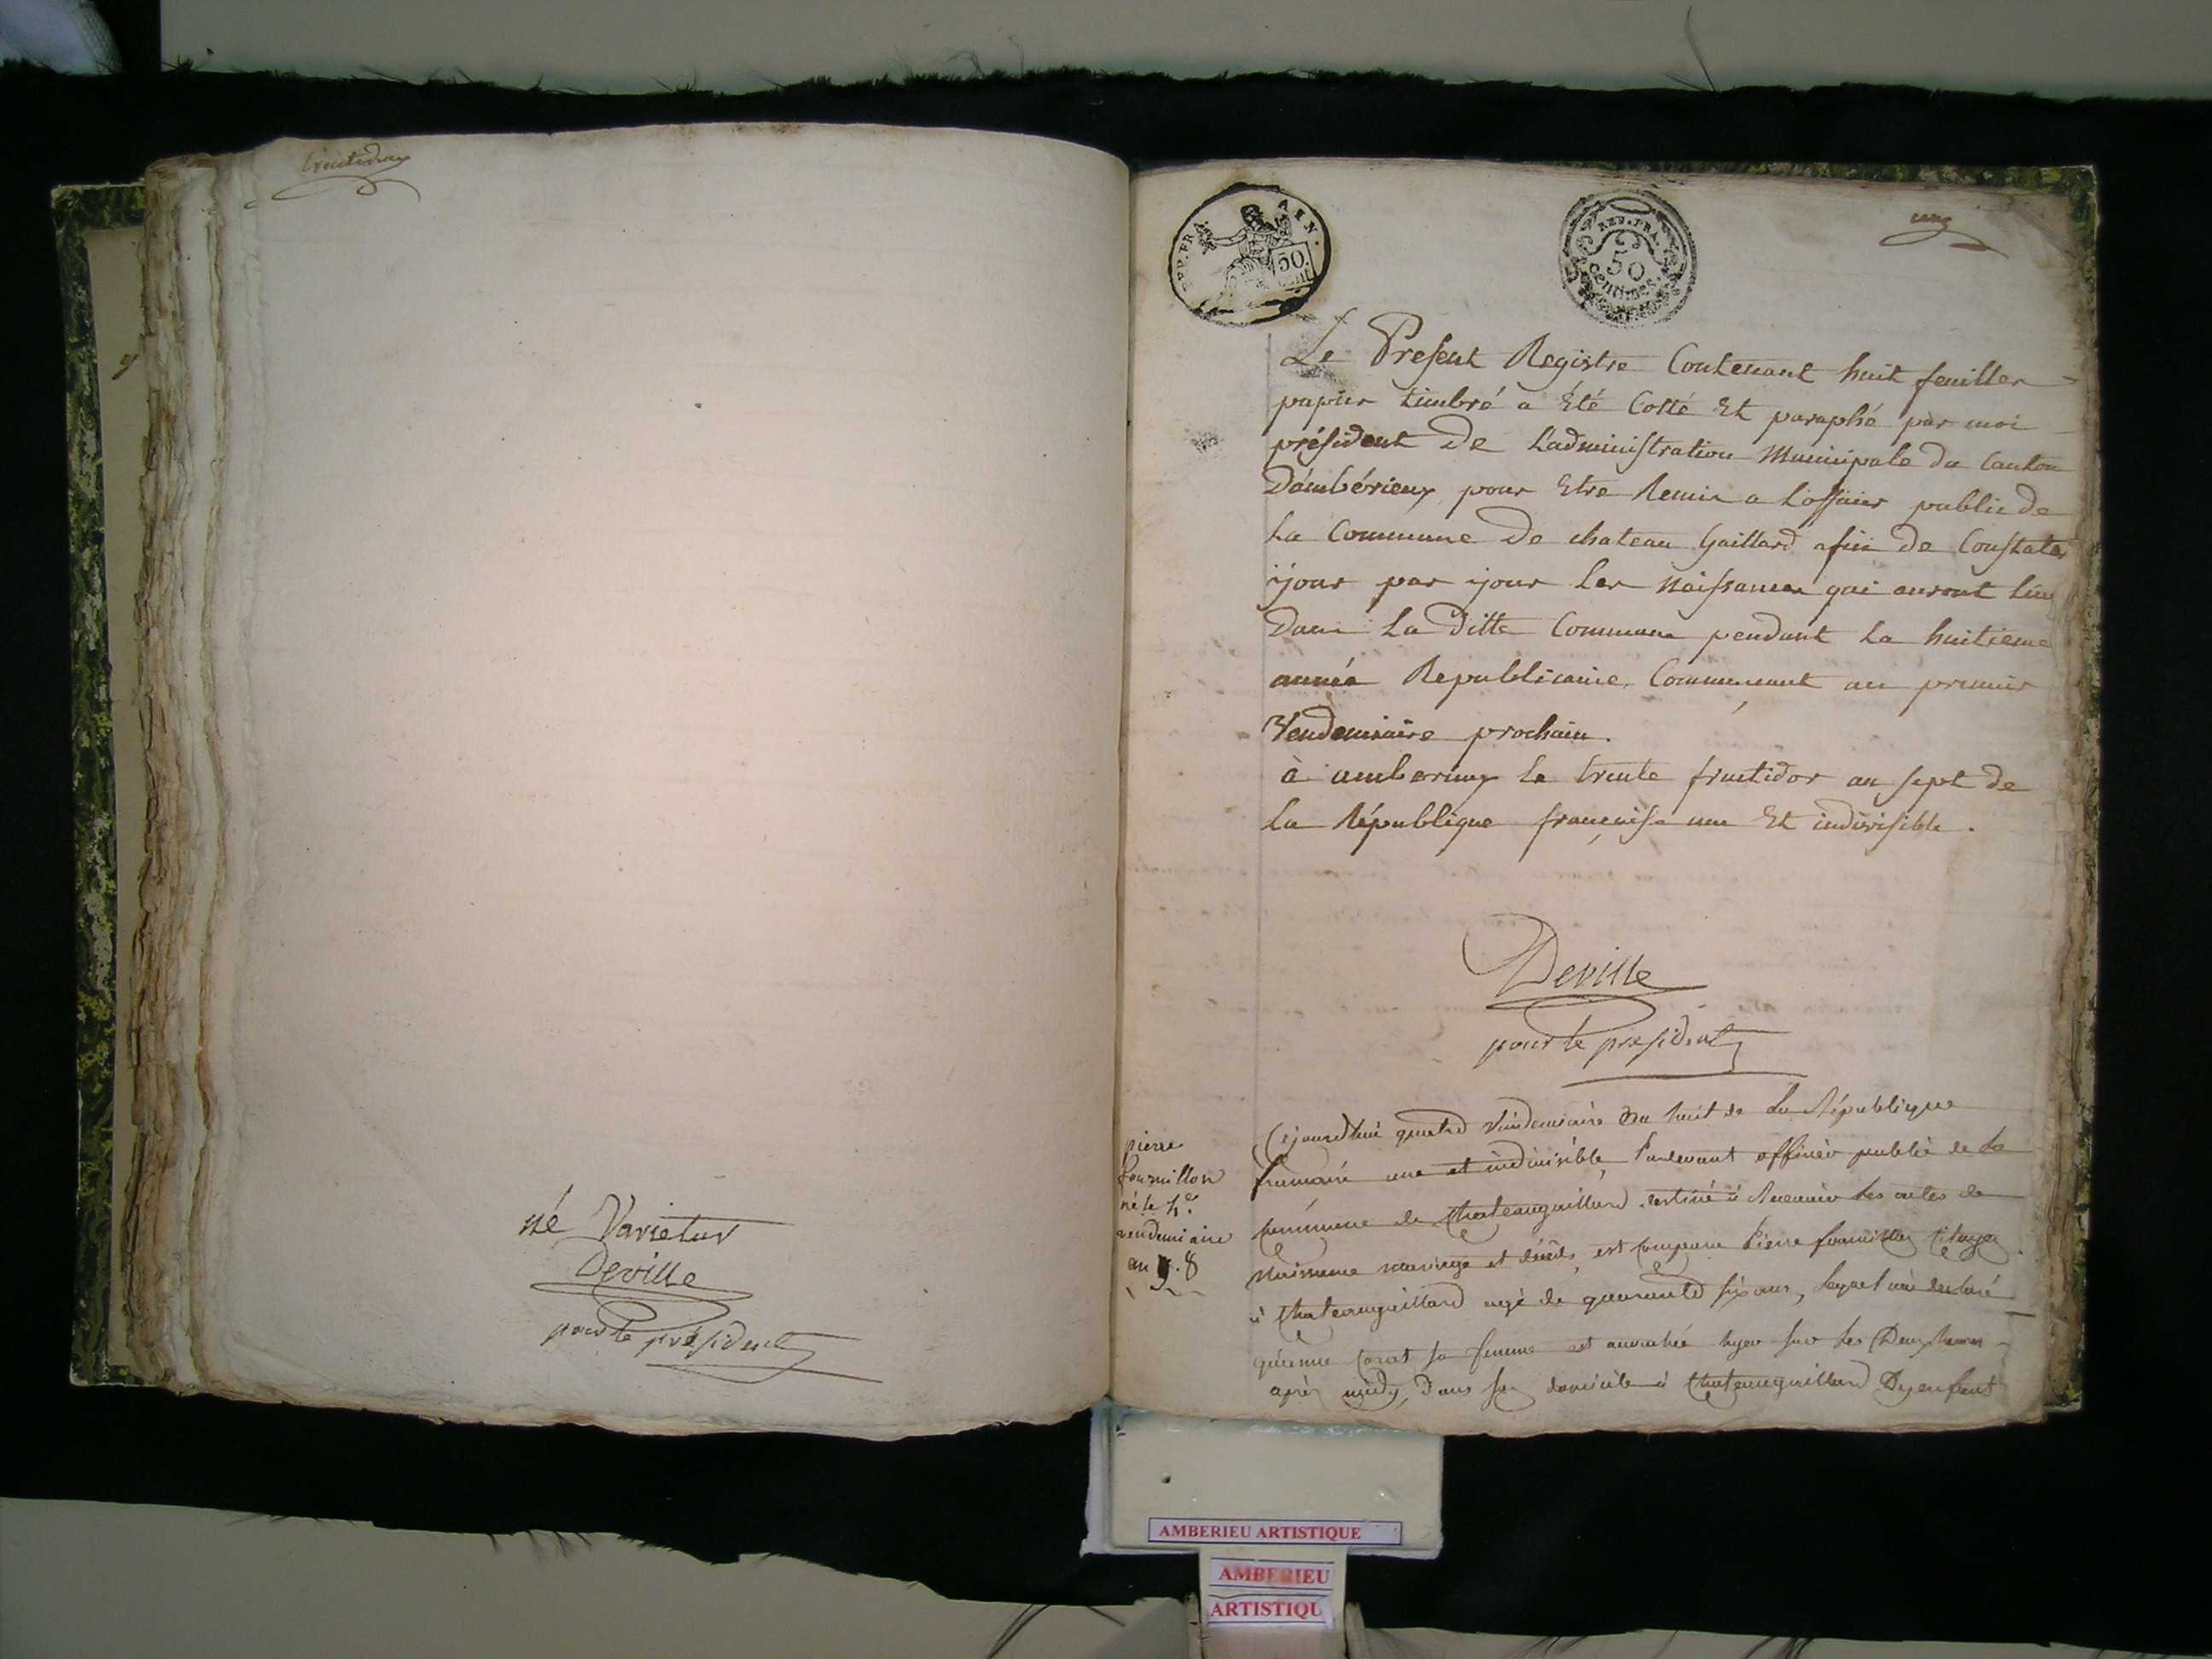 trentedeux
né Varietur
Deville
pour le président
REP. FRA. AIN.
50. CENT.
REP. FRA.
50
centimes
un
Le Present Registre Contenant huit feuilles
papier timbré a Été Cotté Et paraphé par moi
président De L'administration Municipale du Canton
D'ambérieux pour Etre Remis a L'officier public de
La Commune De chateau Gaillard afin de Constater
jour par jour Les Naissances qui auront lieu
Dans La ditte Commune pendant La huitieme
année Republicaine, Commençant au premier
Vendemiaire prochain.
à amberieux le trente fructidor an sept de
La République française une Et indivisible.
Deville
pour le président
pierre
fournillon
né le 4e.
vendemiaire
an 8
Cejourdhui quatre Vendemiaire an huit de La République
francaise une et indivisible, Pardevant officier public de la
commune de Chateaugaillard destiné à Recevoir les actes de
Naissance mariage et décés, est comparu Pierre fournillon
à Chateaugaillard agé de quarante six ans, lequel m'a declaré
sa femme est accouchée hyer sur les Deux heures
après midy, dans son domicile à Chateaugaillard D'un enfant
AMBERIEU ARTISTIQUE
AMBERIEU
ARTISTIQU